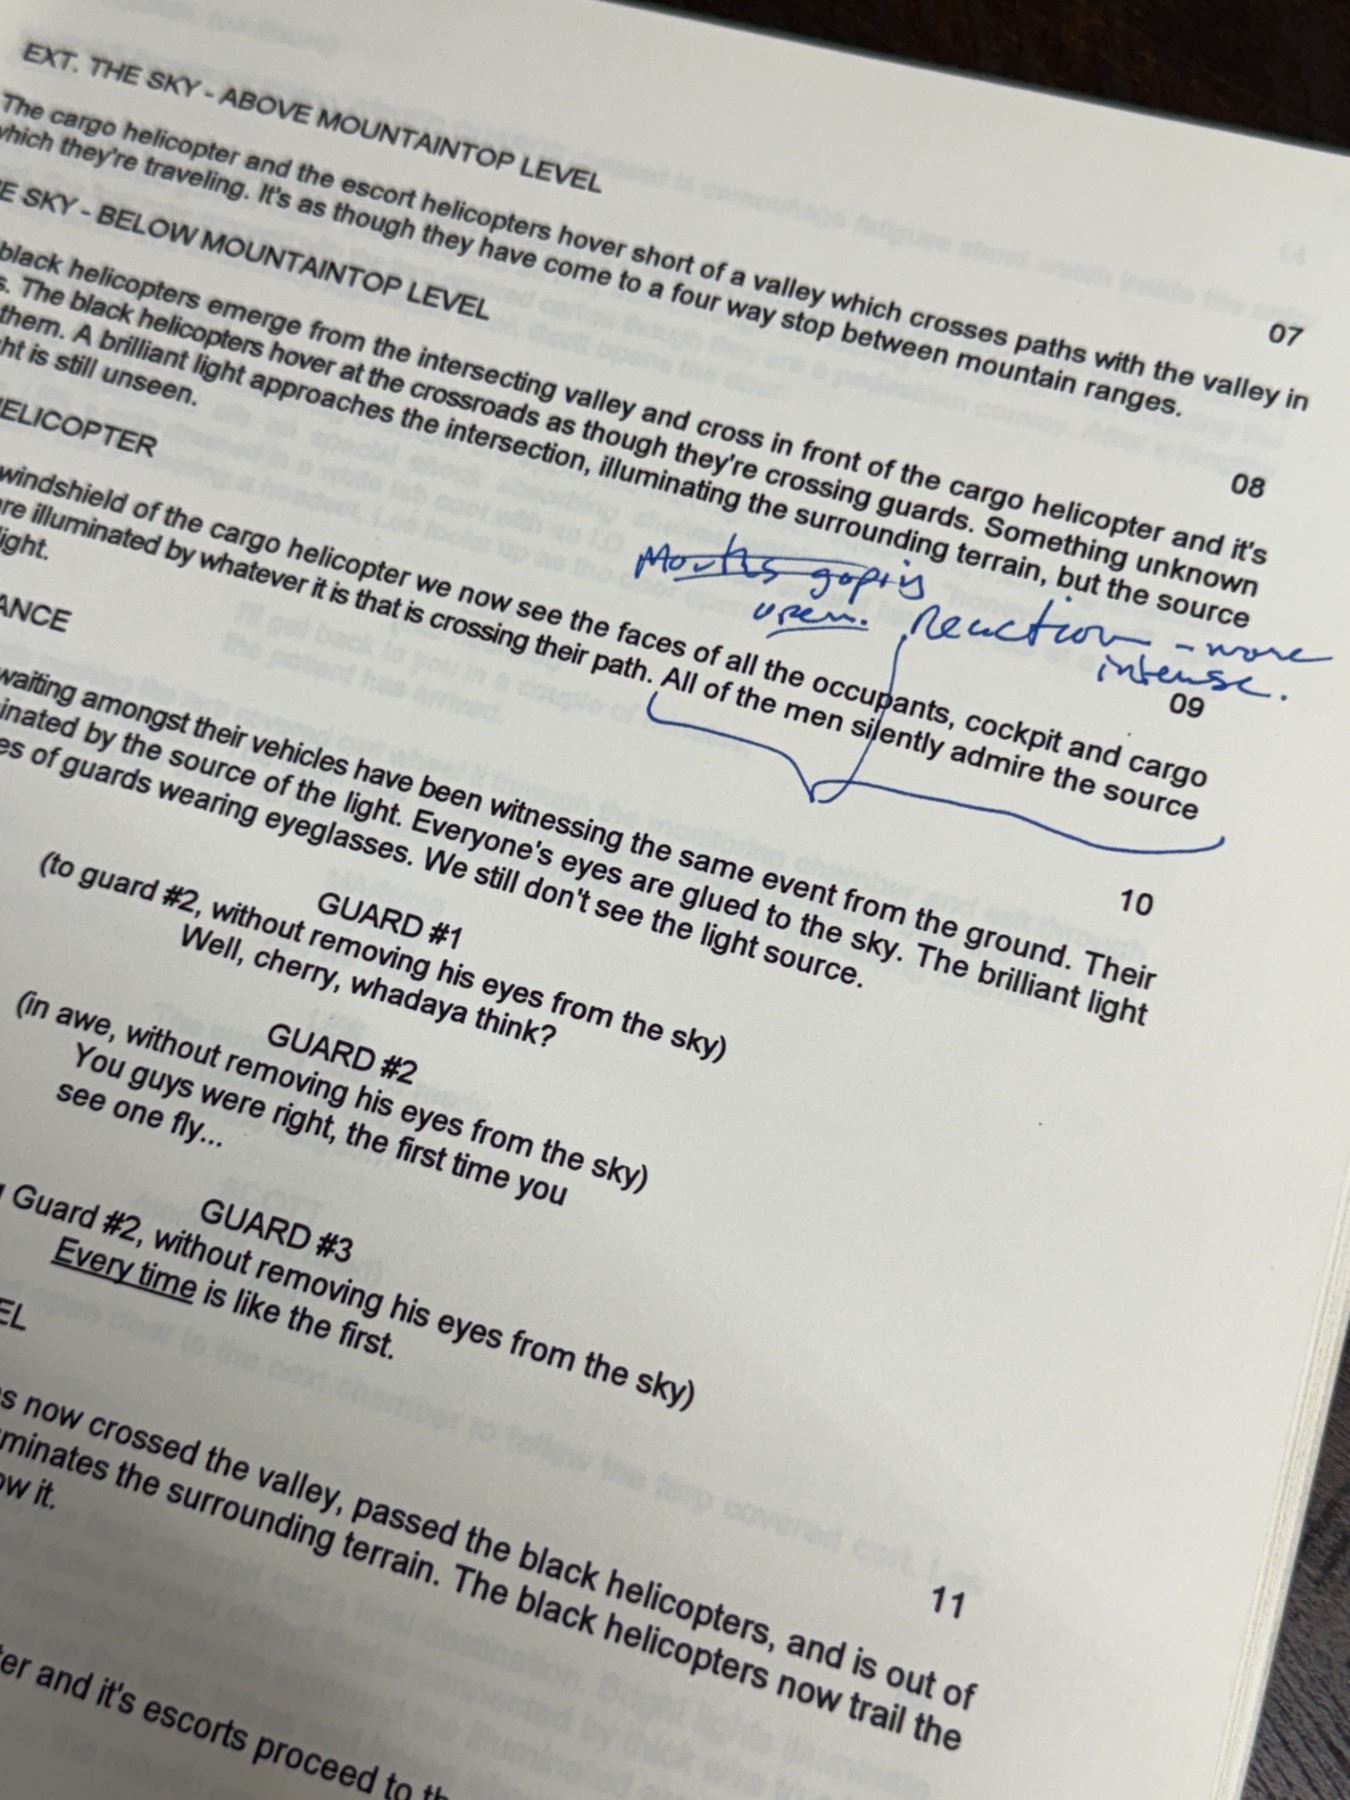 EXT. THE SKY - ABOVE MOUNTAINTOP LEVEL
07
The cargo helicopter and the escort helicopters hover short of a valley which crosses paths with the valley in
which they're traveling. It's as though they have come to a four way stop between mountain ranges.
E SKY - BELOW MOUNTAINTOP LEVEL
08
black helicopters emerge from the intersecting valley and cross in front of the cargo helicopter and it's
s. The black helicopters hover at the crossroads as though they're crossing guards. Something unknown
them. A brilliant light approaches the intersection, illuminating the surrounding terrain, but the source
ht is still unseen.
Mouths gaping
open. Reaction - more
intense.
HELICOPTER
09
windshield of the cargo helicopter we now see the faces of all the occupants, cockpit and cargo
are illuminated by whatever it is that is crossing their path. All of the men silently admire the source
light.
ANCE
10
waiting amongst their vehicles have been witnessing the same event from the ground. Their
inated by the source of the light. Everyone's eyes are glued to the sky. The brilliant light
es of guards wearing eyeglasses. We still don't see the light source.
GUARD #1
(to guard #2, without removing his eyes from the sky)
Well, cherry, whadaya think?
GUARD #2
(in awe, without removing his eyes from the sky)
You guys were right, the first time you
see one fly...
GUARD #3
Guard #2, without removing his eyes from the sky)
Every time is like the first.
EL
11
s now crossed the valley, passed the black helicopters, and is out of
uminates the surrounding terrain. The black helicopters now trail the
ow it.
er and it's escorts proceed to th